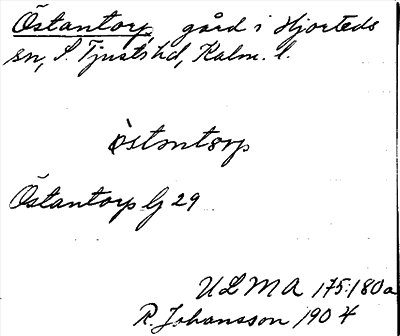 Östantorp, gård i Hjorteds
sn, S. Tjusts hd, Kalm. l.
östantorp
Östantorp lj 29
ULMA 175:180a
R. Johansson 1904